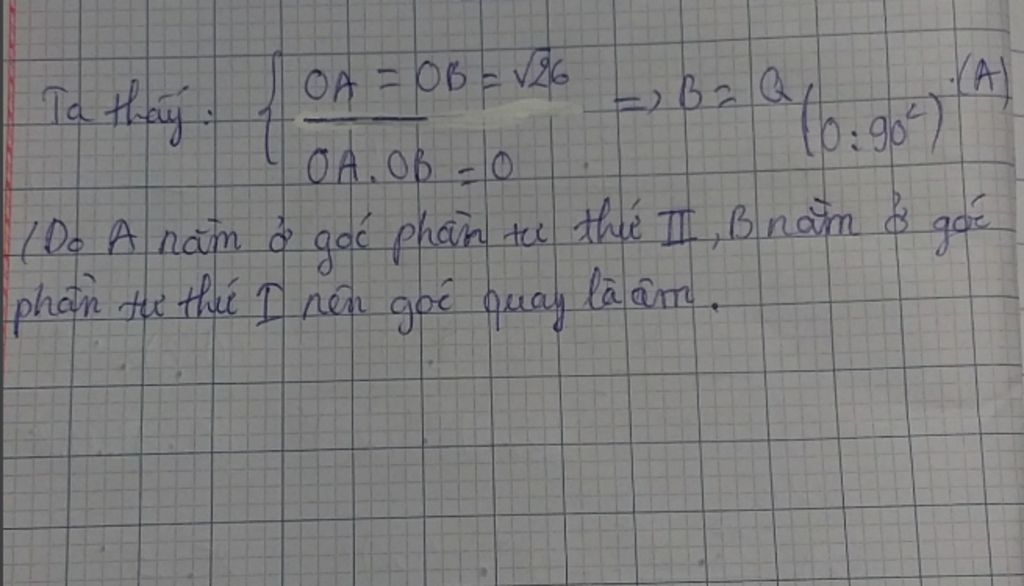 Ta thấy: { OA = OB = √26 => B = Q(O: 90°) (A)
OA. OB = 0
(Do A nằm ở góc phần tư thứ II, B nằm ở góc
phần tư thứ I nên góc quay là âm.